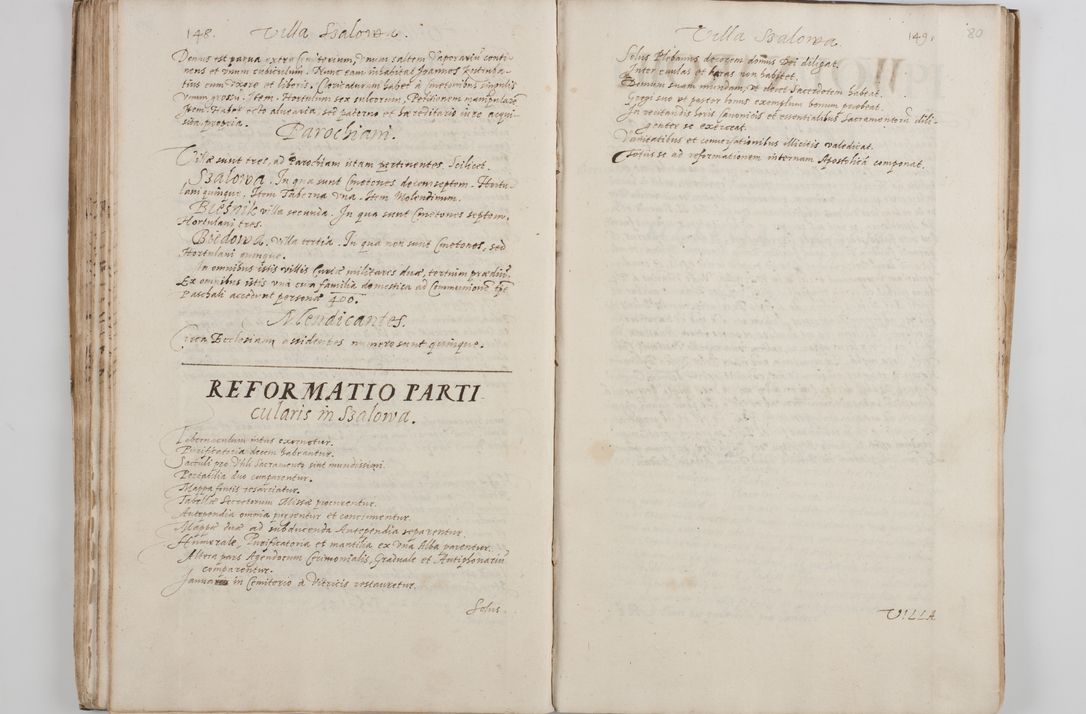 148. Villa Szalowa.
Domus est parua extra Cemitorium, unum saltem Vaporariũ conti-
nens et vnum cubiculum. Nunc eam inhabitat Joannes
tius cum vxore et liberis. Clericaturam habet à Cmetonibus singulis
vnum grossũ. Item. Hortulum sex sulcorum, Petitionem manipularẽ
Item. Habet octo aluearia, sed paterno et haereditario iure acqui-
sita, propria.
Parochiani.
Villae sunt tres, ad Parochiam istam pertinentes. Scilicet.
Szalowa. In qua sunt Cmetones decemseptem. Hortu-
lani quinque. Item Taberna vna. Item Molendinum.
Biesnik villa secunda. In qua sunt Cmetones septem.
Hortulani tres.
Biedowa. villa tertia. In qua non sunt Cmetones, sed
Hortulani quinque.
In omnibus istis villis Curiae militares duae, tertium praediũ.
Ex omnibus istis vna cum familia domestica ad Communionẽ tpẽ
Paschali accedunt personae 400.
Mendicantes.
Circa Ecclesiam assidentes numero sunt quinque.
REFORMATIO PARTI
cularis in Szalowa.
Tabernaculum intus exornetur.
Purificatoria decem habeantur.
Sacculi pro Vbli Sacramento sint mundissimi.
Portatilia duo comparentur.
Mappa fontis resarciatur.
Tabellae Secretorum Missae procurentur.
Antependia omnia parentur et concinnentur.
Mappae duae ad subducenda Antependia separentur.
Humerale, Purificatoria et mantilia ex vna Alba parentur.
Altera pars Agendorum Cerimonialis, Graduale et Antiphonariũ
comparentur.
Januae in Cemiterio à Vitricis restauretur.
Solus.
Villa Szalowa. 149. 80
Solus Plebanus decorem domus Dei diligat.
Inter caulas et haras non habitet.
Domum suam mundam, vt decet Sacerdotem habeat.
Gregi suo vt pastor bonus exemplum bonum praebeat.
In recitandis horis Canonicis et essentialibus Sacramentorũ dili-
genter se exerceat.
Vanitatibus et conuersationibus illicitis valedicat.
Totus se ad reformationem internam Apostolicã componat.
VILLA